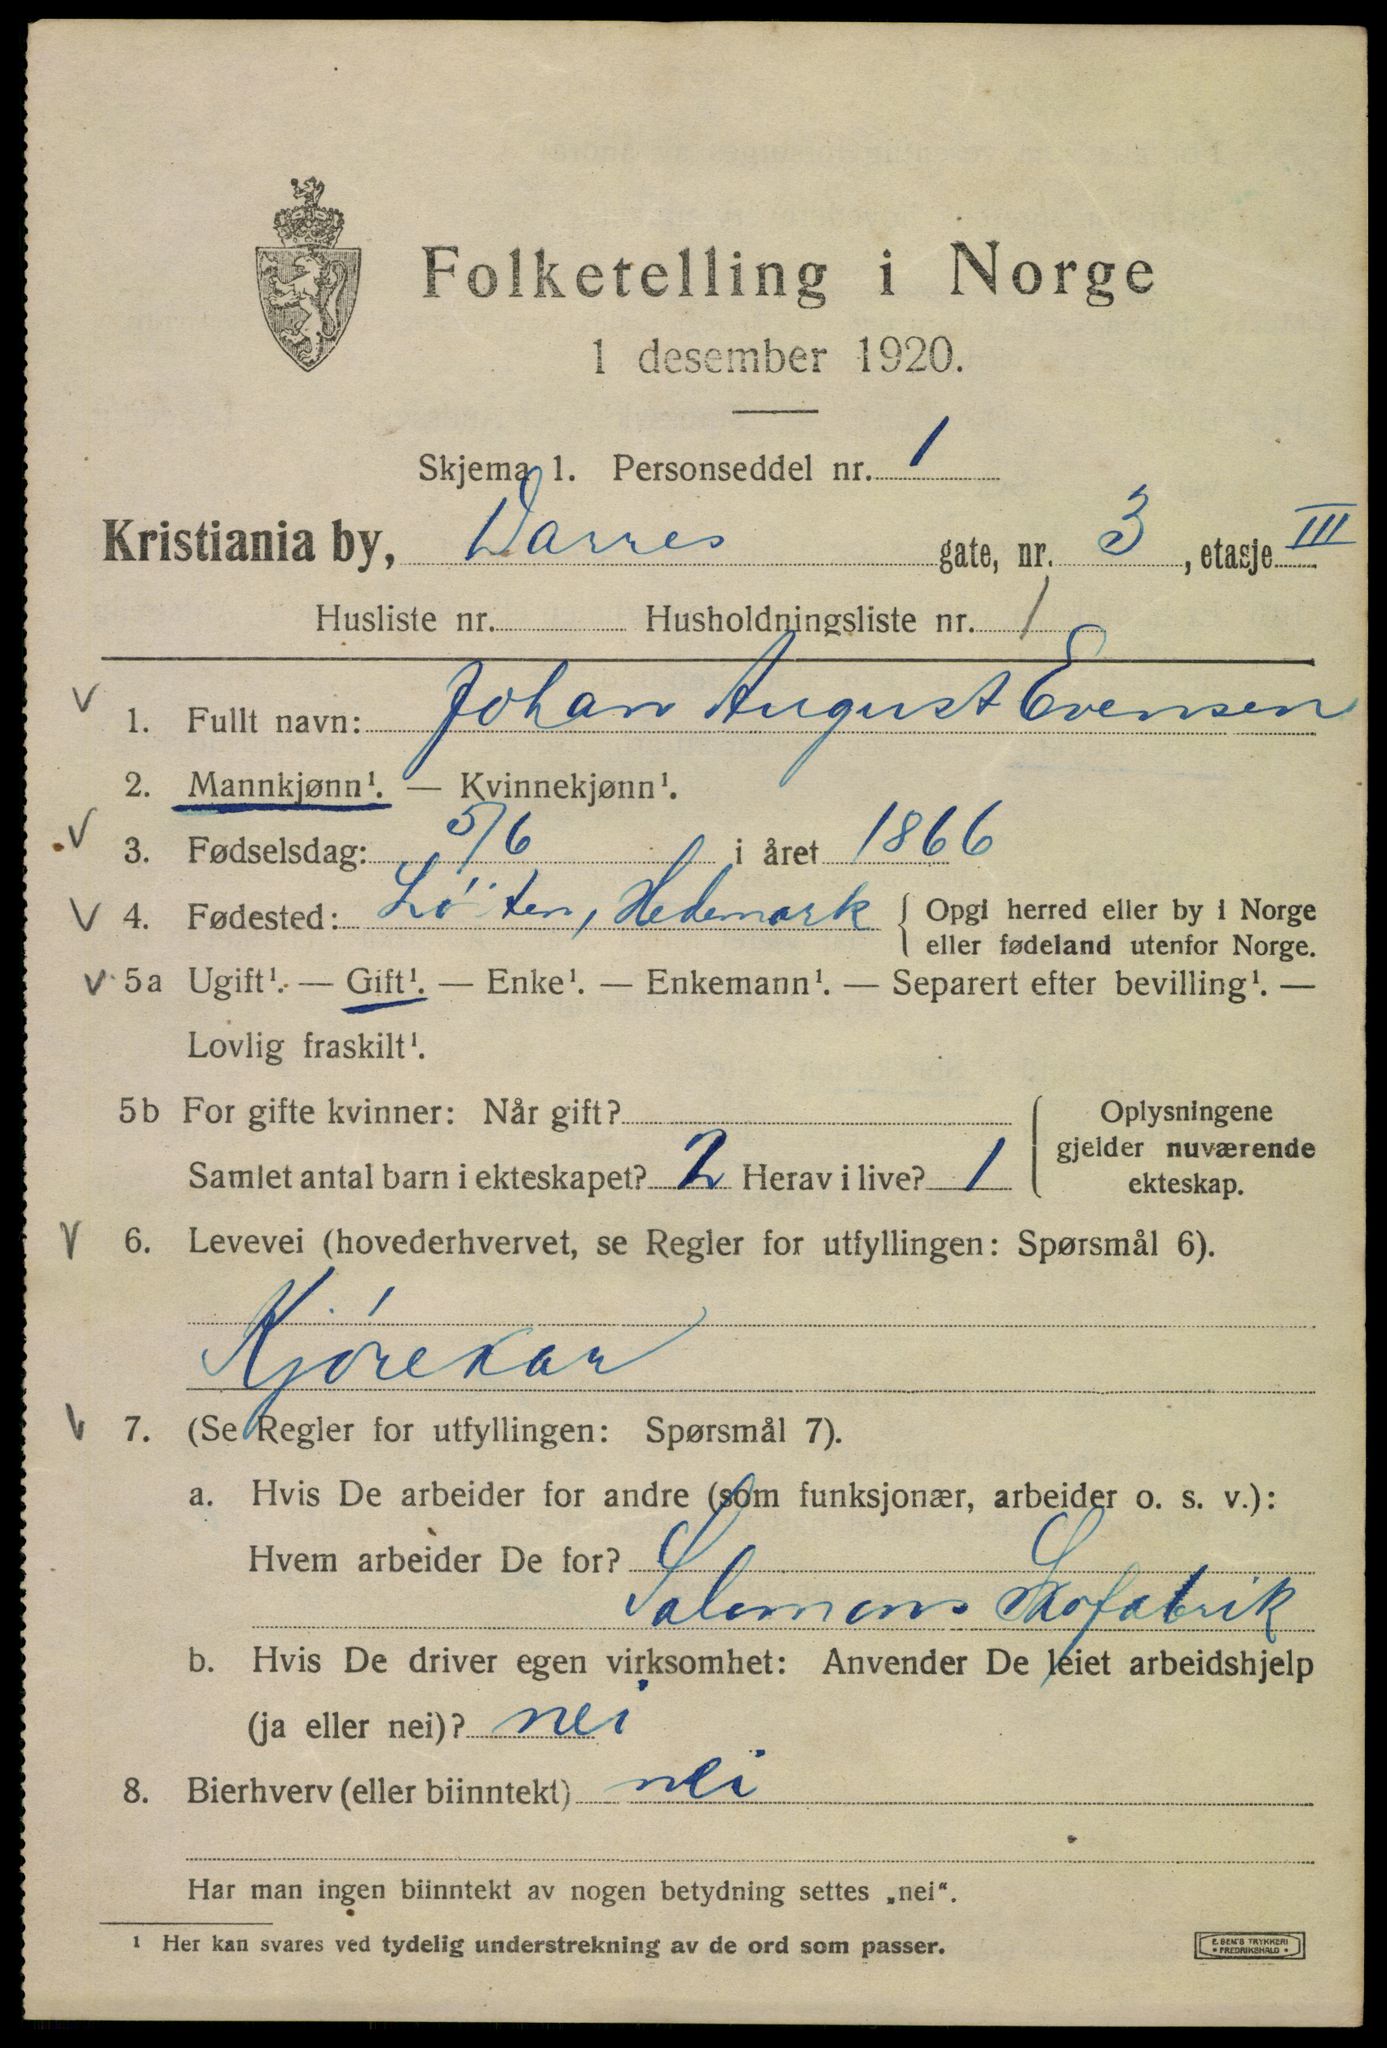 Folketelling i Norge
1 desember 1920.
Skjema 1. Personseddel nr. 1
Kristiania by, Darres gate, nr. 3, etasje III
Husliste nr. Husholdningsliste nr. 1
1. Fullt navn: Johan August Evensen
2. Mannkjønn¹. — Kvinnekjønn¹.
3. Fødselsdag: 5/6 i året 1866
4. Fødested: Löiten, Hedemark { Opgi herred eller by i Norge
eller fødeland utenfor Norge.
5a Ugift¹. — Gift¹. — Enke¹. — Enkemann¹. — Separert efter bevilling¹. —
Lovlig fraskilt¹.
5b For gifte kvinner: Når gift? { Oplysningene
gjelder nuværende
Samlet antal barn i ekteskapet? 2 Herav i live? 1 ekteskap.
6. Levevei (hovederhvervet, se Regler for utfyllingen: Spørsmål 6).
Kjörekar
7. (Se Regler for utfyllingen: Spørsmål 7).
a. Hvis De arbeider for andre (som funksjonær, arbeider o. s. v.):
Hvem arbeider De for?
Salomons Skofabrik
b. Hvis De driver egen virksomhet: Anvender De leiet arbeidshjelp
(ja eller nei)? nei
8. Bierhverv (eller biinntekt) nei
Har man ingen biinntekt av nogen betydning settes „nei“.
¹ Her kan svares ved tydelig understrekning av de ord som passer.
E. SEM'S TRYKKERI
FREDRIKSHALD